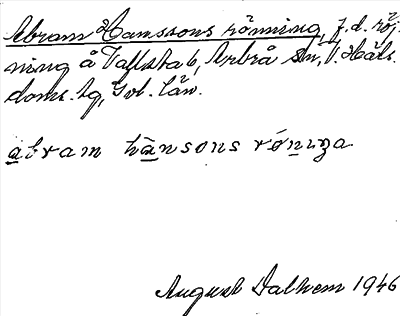 Abram Hanssons rönning, f.d. röj-
ning å Vallsta 6, Arbrå sn, V. Häls.
doms. hg, Gvb. län.
abram hánsons rónıŋa
August Dalhem 1946